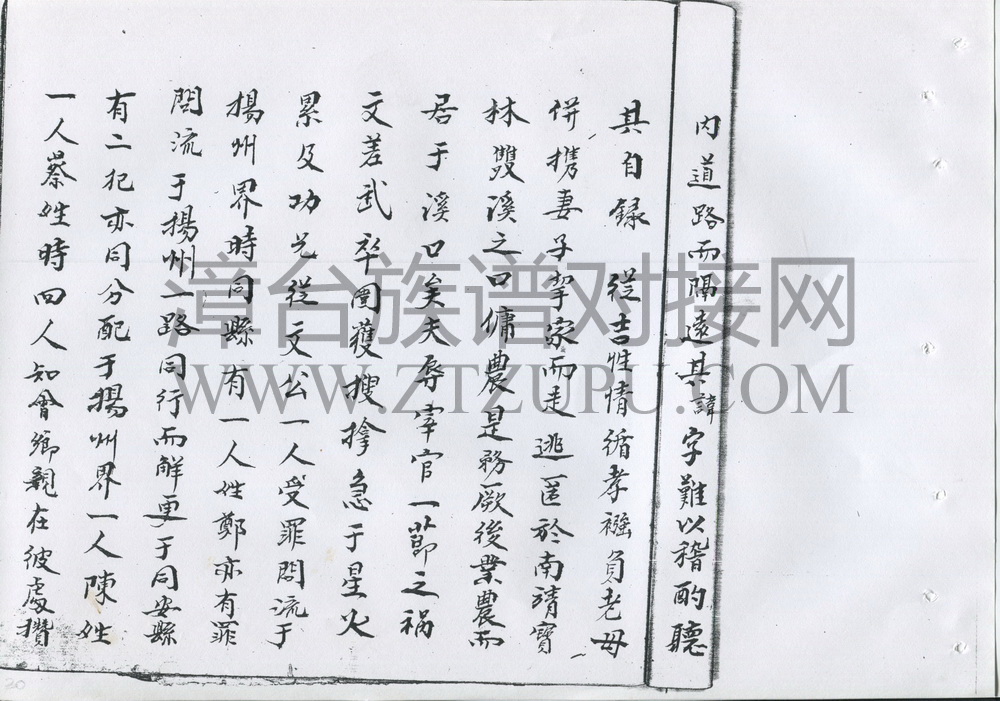 內道路而隔遠其諱字難以稽酌聽
其自録 從吉性情循孝襁負老母
併携妻子挈家而走逃匿於南靖寶
林雙溪之口傭農是務厥後業農而
居于溪口矣夫辱宰官一節之禍
文差武卒圍獲搜擒急于星火
累及功兄從文公一人受罪問流于
揚州界時同縣有一人姓鄭亦有罪
問流于揚州一路同行而解更于同安縣
有二犯亦同分配于揚州界一人陳姓
一人蔡姓時四人知會鄉親在彼處攢
漳台族谱对接网
WWW.ZTZUPU.COM
20